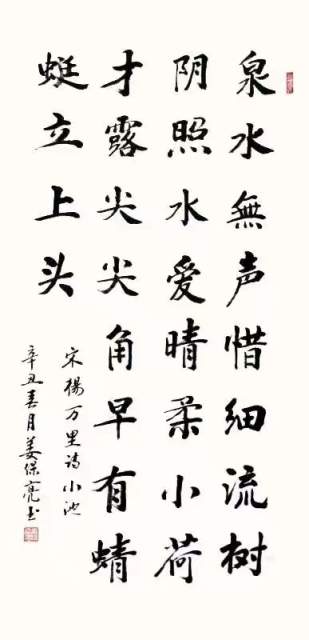 泉水無声惜细流树
阴照水爱晴柔小荷
才露尖尖角早有蜻
蜓立上头
宋楊万里诗小池
辛丑春月姜保亮书